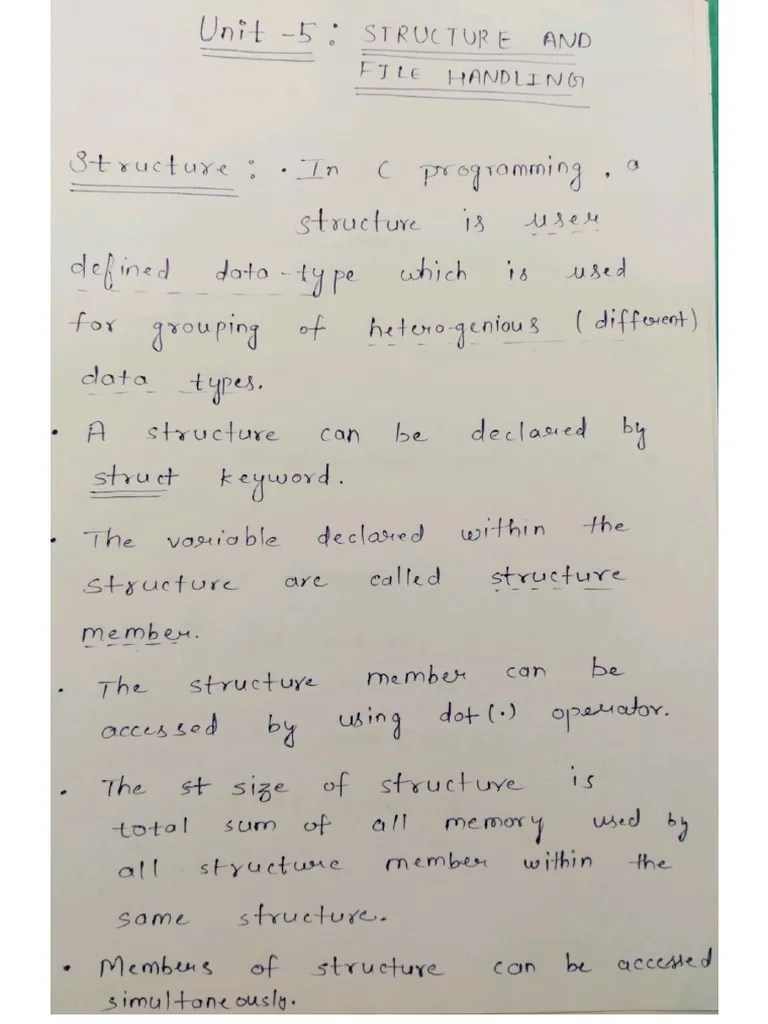 Unit - 5 : STRUCTURE AND
FILE HANDLING
Structure : • In C programming, a
structure is user
defined data-type which is used
for grouping of hetero-genious (different)
data types.
• A structure can be declared by
struct keyword.
• The variable declared within the
structure are called structure
member.
• The structure member can be
accessed by using dot (.) operator.
• The st size of structure is
total sum of all memory used by
all structure member within the
same structure.
• Members of structure can be accessed
simultaneously.